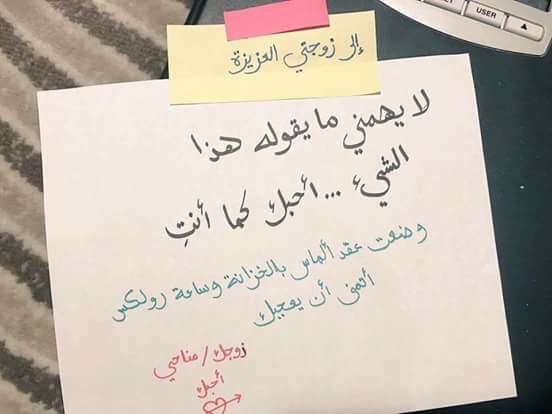 USER
إلى زوجتي العزيزة
لا يهمني ما يقوله هذا
الشيء ... أحبك كما أنتِ
وضعت عقد ألماس بالخزانة وساعة رولكس
أتمنى أن يعجبك
زوجك / مناحي
أحبك